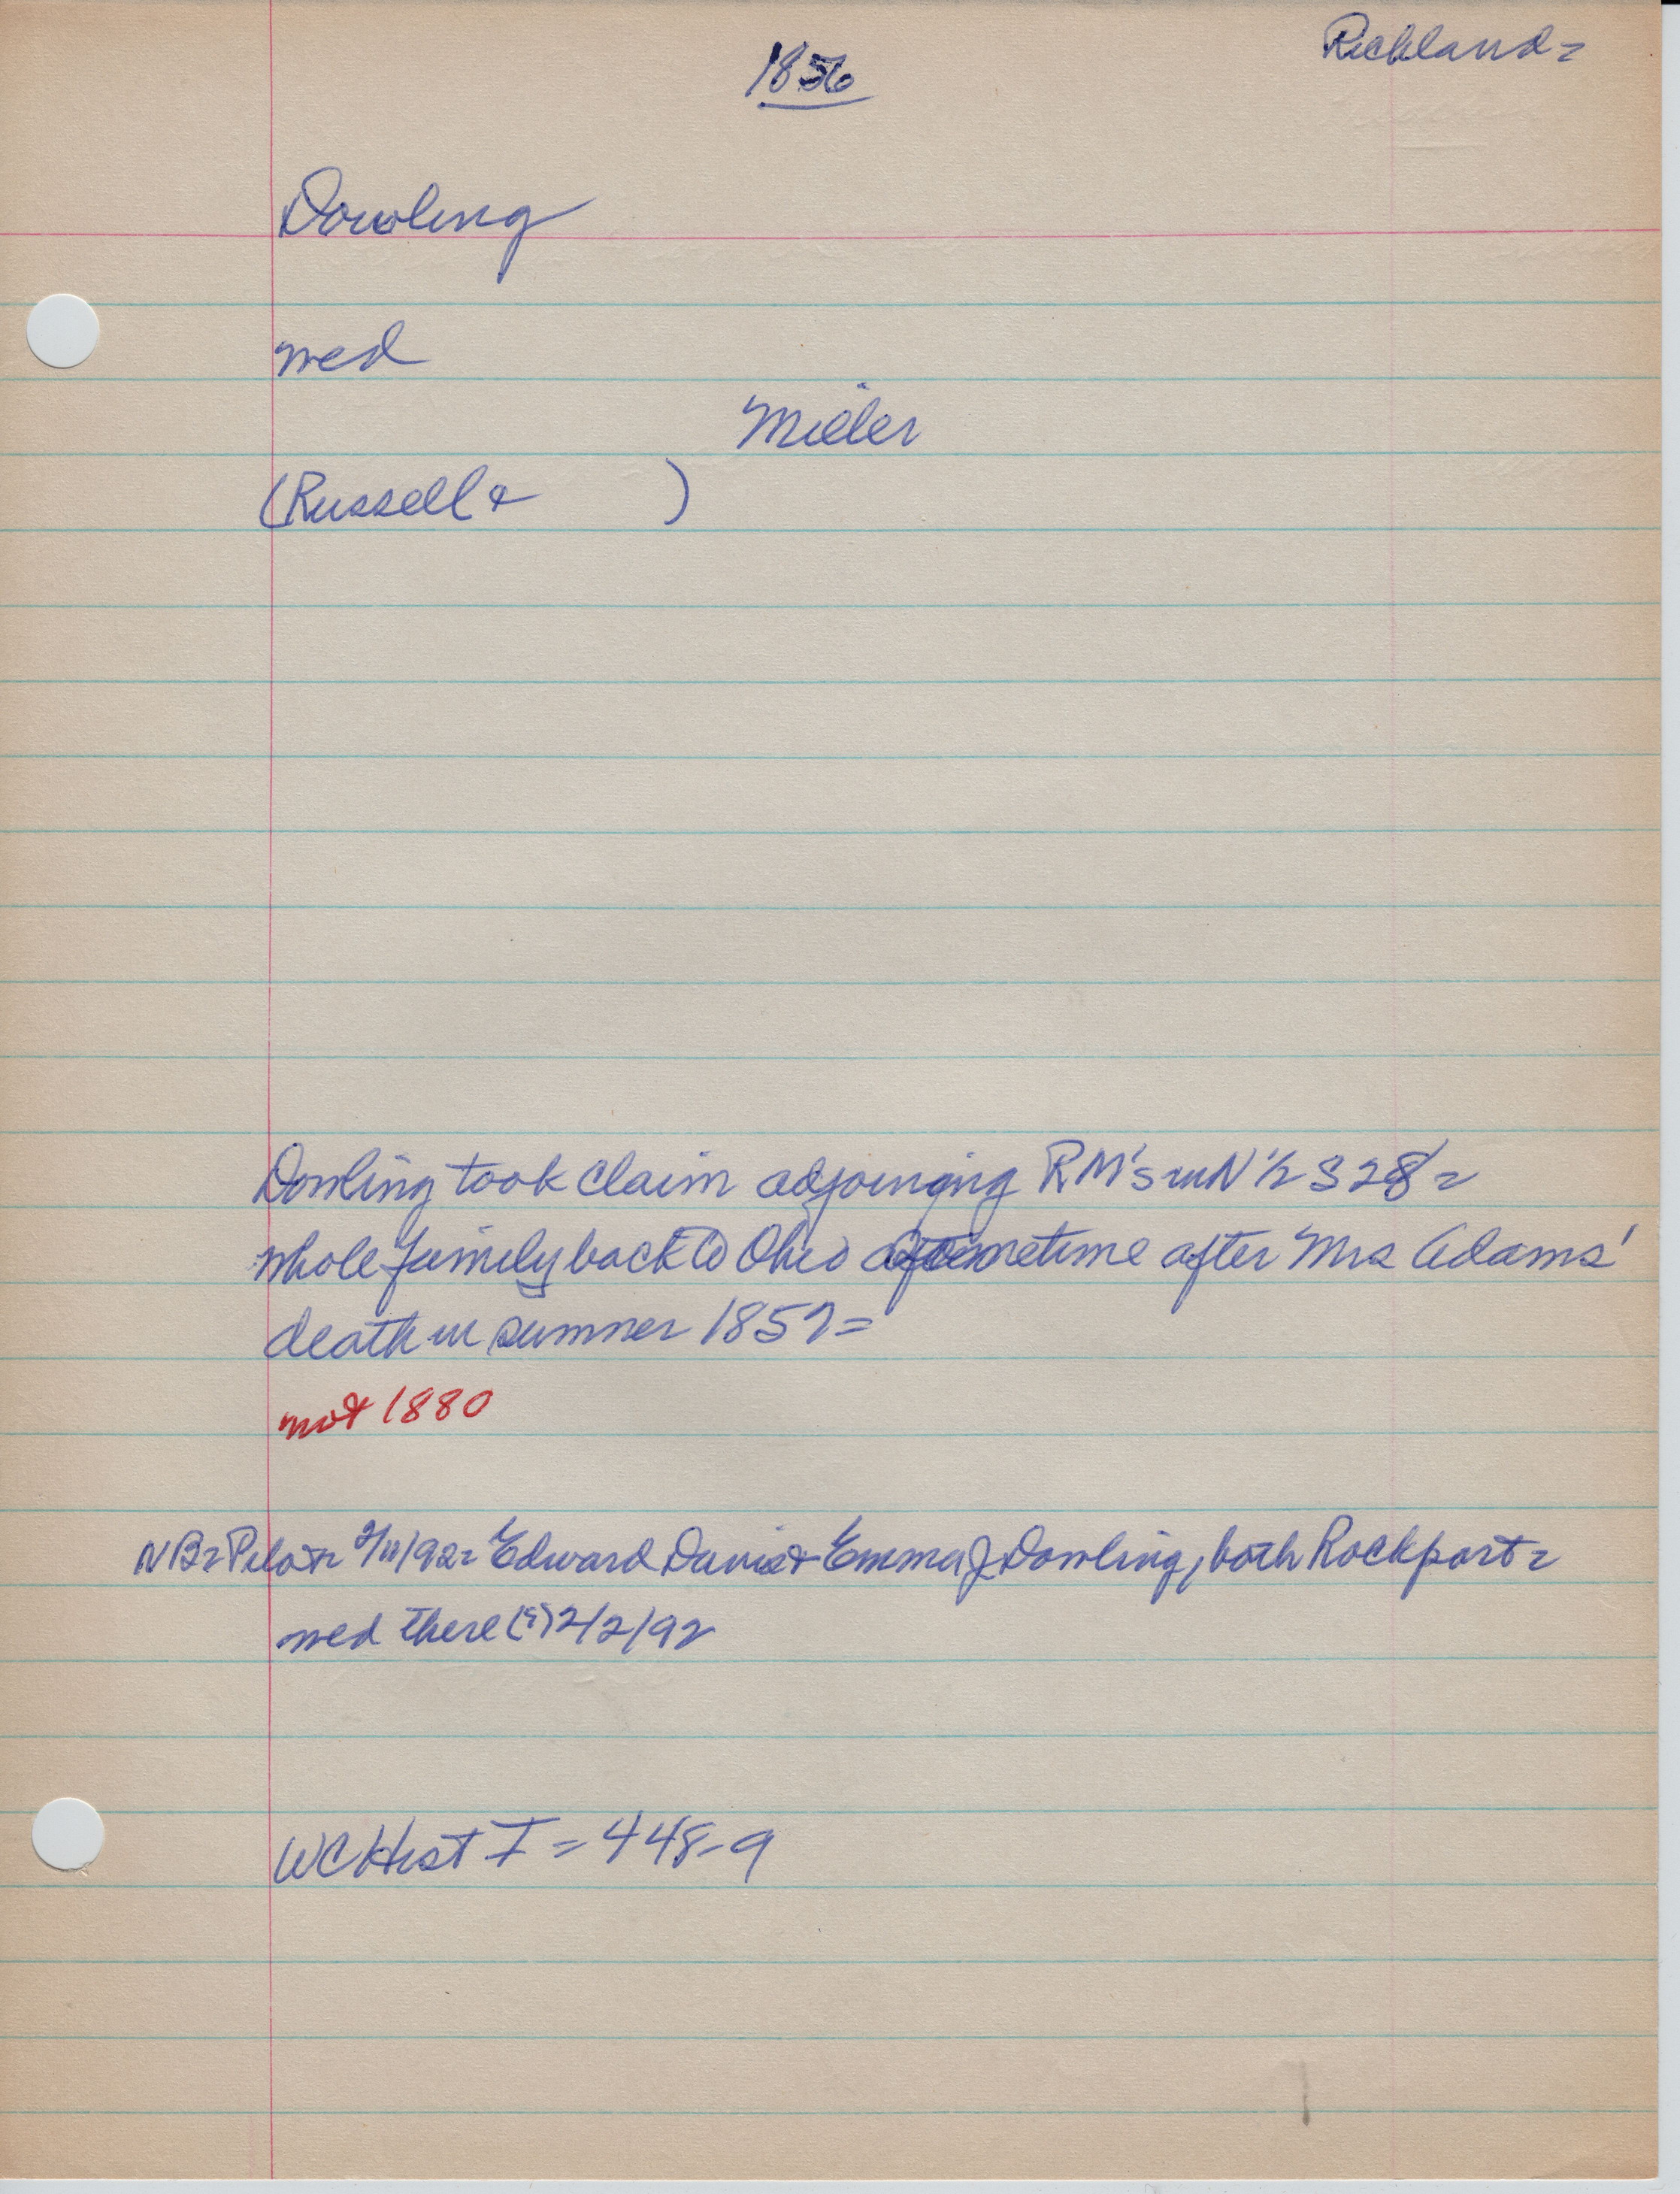 Richland =
1856
Dowling
med
Miller
(Russell &        )
Dowling took claim adjoinging RM's in N 1/2 S 28 =
whole family back to Ohio sometime after Mrs Adams'
death in summer 1857 =
not 1880
NB = Pilot = 2/11/92 = Edward Davis & Emma J Dowling, both Rockport =
med there (?) 2/2/92
WC Hist I = 448-9